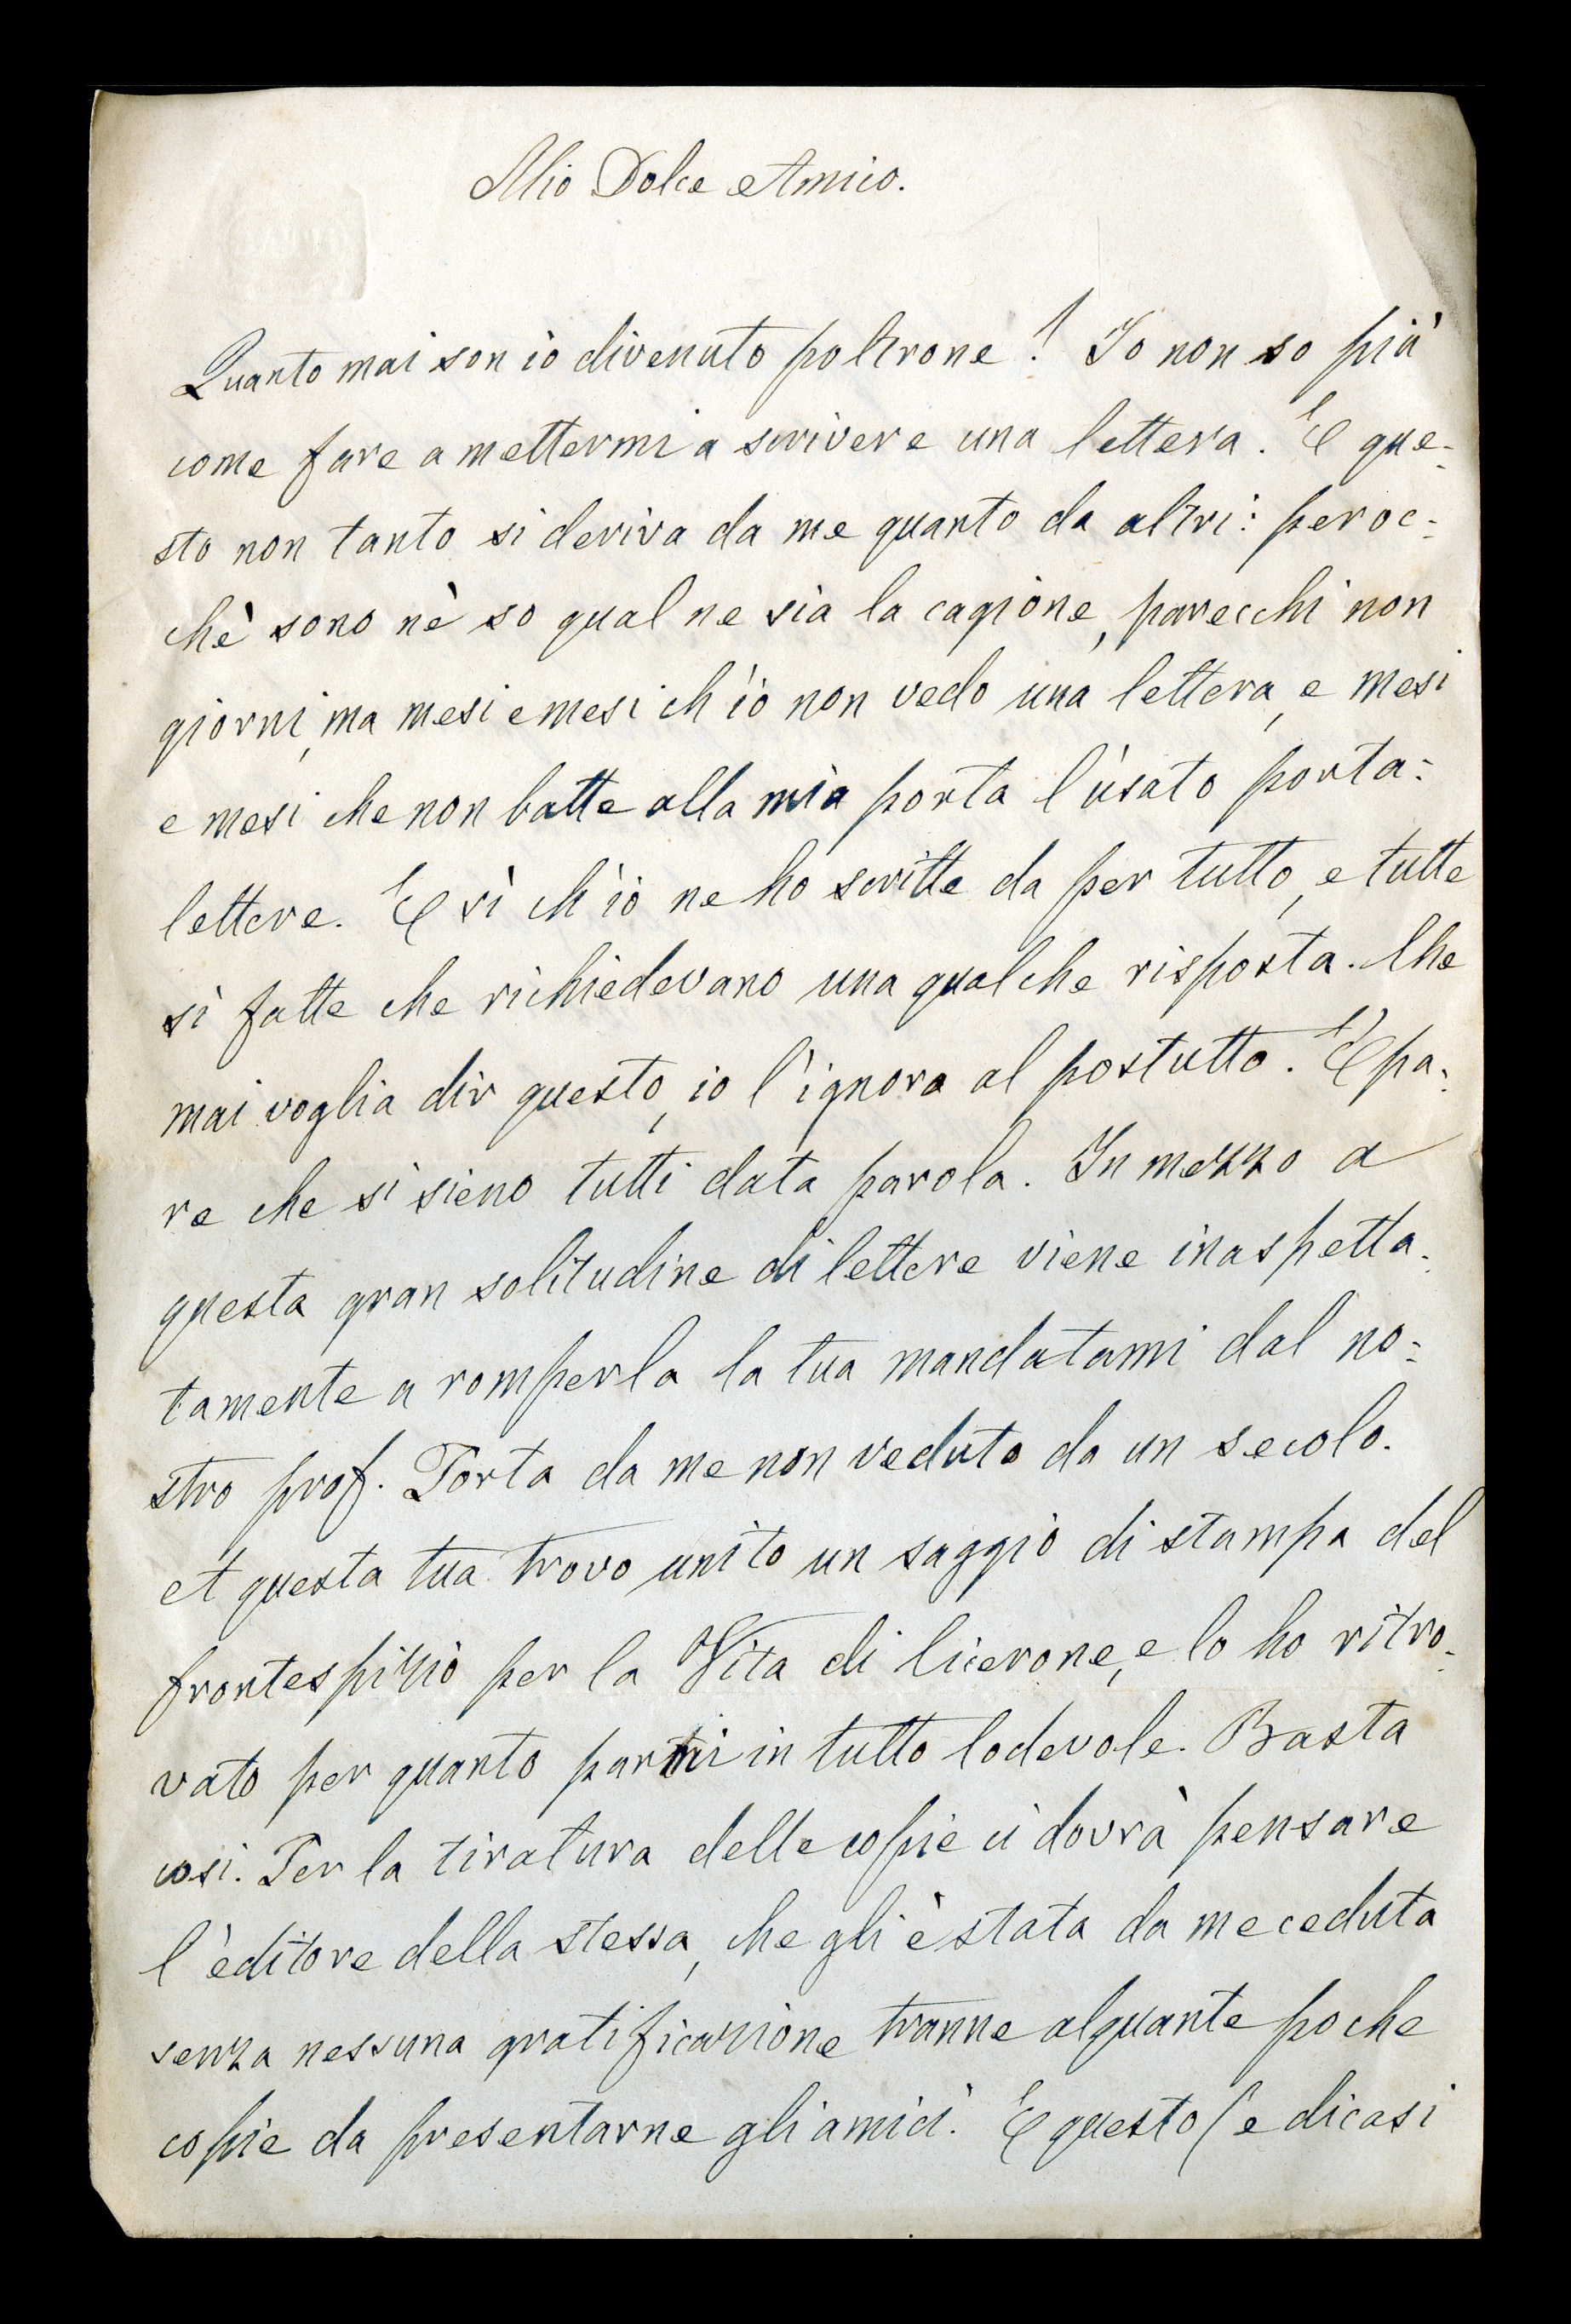 Mio Dolce Amico.
Quanto mai son io divenuto poltrone! Io non so più
come fare a mettermi a scrivere una lettera. E que-
sto non tanto si deriva da me quanto da altri: peroc-
chè sono nè so qual ne sia la cagione, parecchi non
giorni, ma mesi e mesi ch'io non vedo una lettera, e mesi
e mesi che non batte alla mia porta l'usato porta-
lettere. E sì ch'io ne ho scritte da per tutto, e tutte
sì fatte che richiedevano una qualche risposta. Che
mai voglia dir questo, io l'ignora al postutto. E pa-
re che si sieno tutti data parola. In mezzo a
questa gran solitudine di lettere viene inaspetta-
tamente a romperla la tua mandatami dal no-
stro prof. Torta da me non veduto da un secolo.
A questa tua trovo unito un saggio di stampa del
frontespizio per la Vita di Cicerone, e lo ho ritro-
vato per quanto parmi in tutto lodevole. Basta
così. Per la tiratura delle copie ci dovrà pensare
l'editore della stessa, che gli è stata da me ceduta
senza nessuna gratificazione tranne alquante poche
copie da presentarne gli amici. E questo (e dicasi